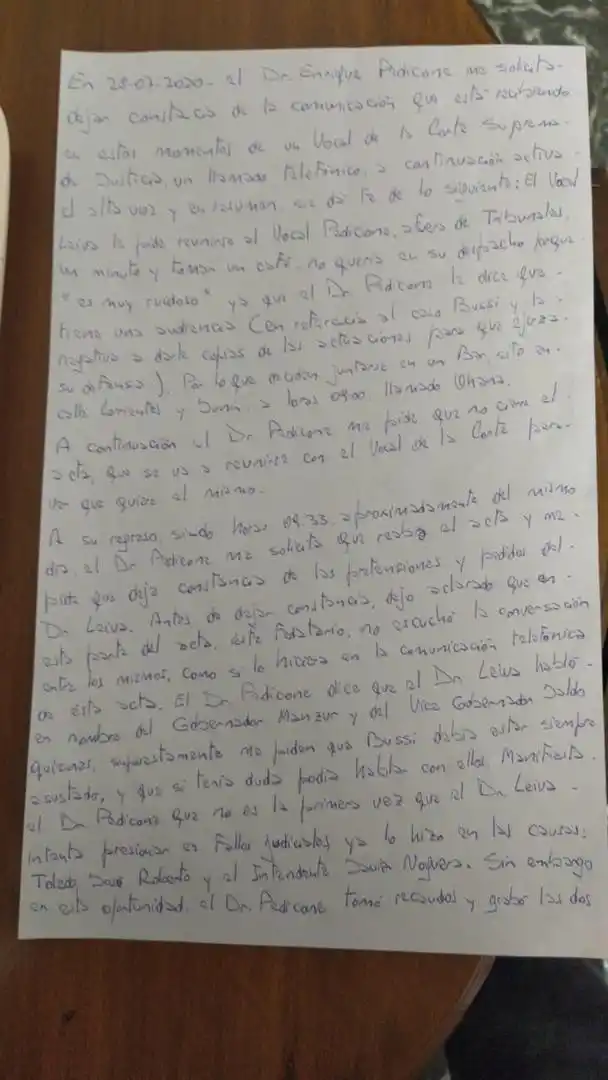 En 28-07-2020- el Dr. Enrique Pedicone me solicita-
dejar constacia de la comunicación que está recibiendo
en estos momentos de un Vocal de la Corte Suprema-
de Justicia, un llamado telefónico, a continuación activa-
el alta voz y en resumen, se da fe de lo siguiente: El Vocal
Leiva le pide reunirse al Vocal Pedicone, afuera de Tribunales,
un minuto y tomar un café, no queria en su despacho porque
"es muy ruidoso" ya que el Dr. Pedicone le dice que-
tiene una audiencia (en referencia al caso Bussi y la-
negativa a darle copias de las actuaciones para que ejerza-
su defensa). Por lo que deciden juntarse en un Bar, sito en-
calle Corrientes y Junin, a horas 09:00, llamado Ohana.
A continuación el Dr. Pedicone me pide que no cierre el
acta, que se va a reunirse con el Vocal de la Corte para-
ver que quiere el mismo.
A su regreso, siendo horas 09.33. aproximadamente del mismo
dia, el Dr Pedicone me solicita que reabra el acta y me-
pide que deje constancia de las pretensiones y pedidos del-
Dr. Leiva. Antes de dejar constancia, dejo aclarado que en-
esta parte del acta, este Fedatario, no escuchó la conversación
entre los mismos, como si lo hiciera en la comunicación telefónica
de ésta acta. El Dr. Pedicone dice que el Dr. Leiva habló-
en nombre del Gobernador Manzur y del Vice Gobernador Jaldo
quienes, supuestamente me piden que Bussi debia estar siempre
asustado, y que si tenia duda podia hablar con ellos. Manifiesta.
el Dr Pedicone que no es la primera vez que el Dr. Leiva-
intenta presionar en Fallos judiciales ya lo hizo en las causas:
Toledo José Roberto y al Intendente Javier Noguera. Sin embargo
en esta oportunidad, el Dr. Pedicone tomó recaudos y grabó las dos